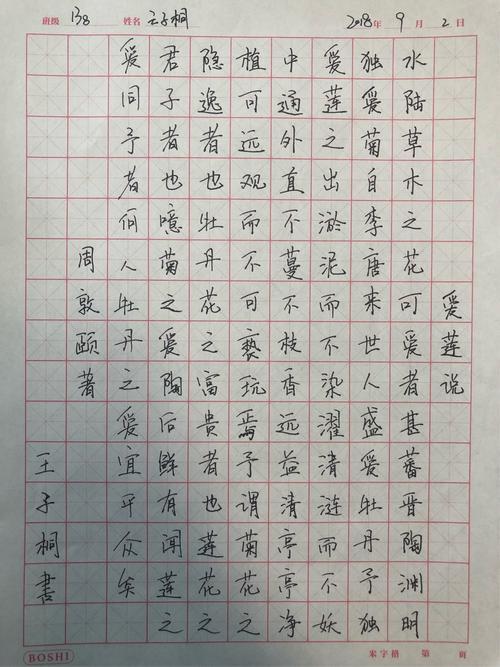 班级 138 姓名 王子桐 2018年 9月 2日
爱莲说
水陆草木之花可爱者甚蕃晋陶渊明
独爱菊自李唐来世人盛爱牡丹予独
爱莲之出淤泥而不染濯清涟而不妖
中通外直不蔓不枝香远益清亭亭净
植可远观而不可亵玩焉予谓菊花之
隐逸者也牡丹花之富贵者也莲花之
君子者也噫菊之爱陶后鲜有闻莲之
爱同予者何人牡丹之爱宜乎众矣
周敦颐著
王子桐書
BOSHI 米字格 第 页